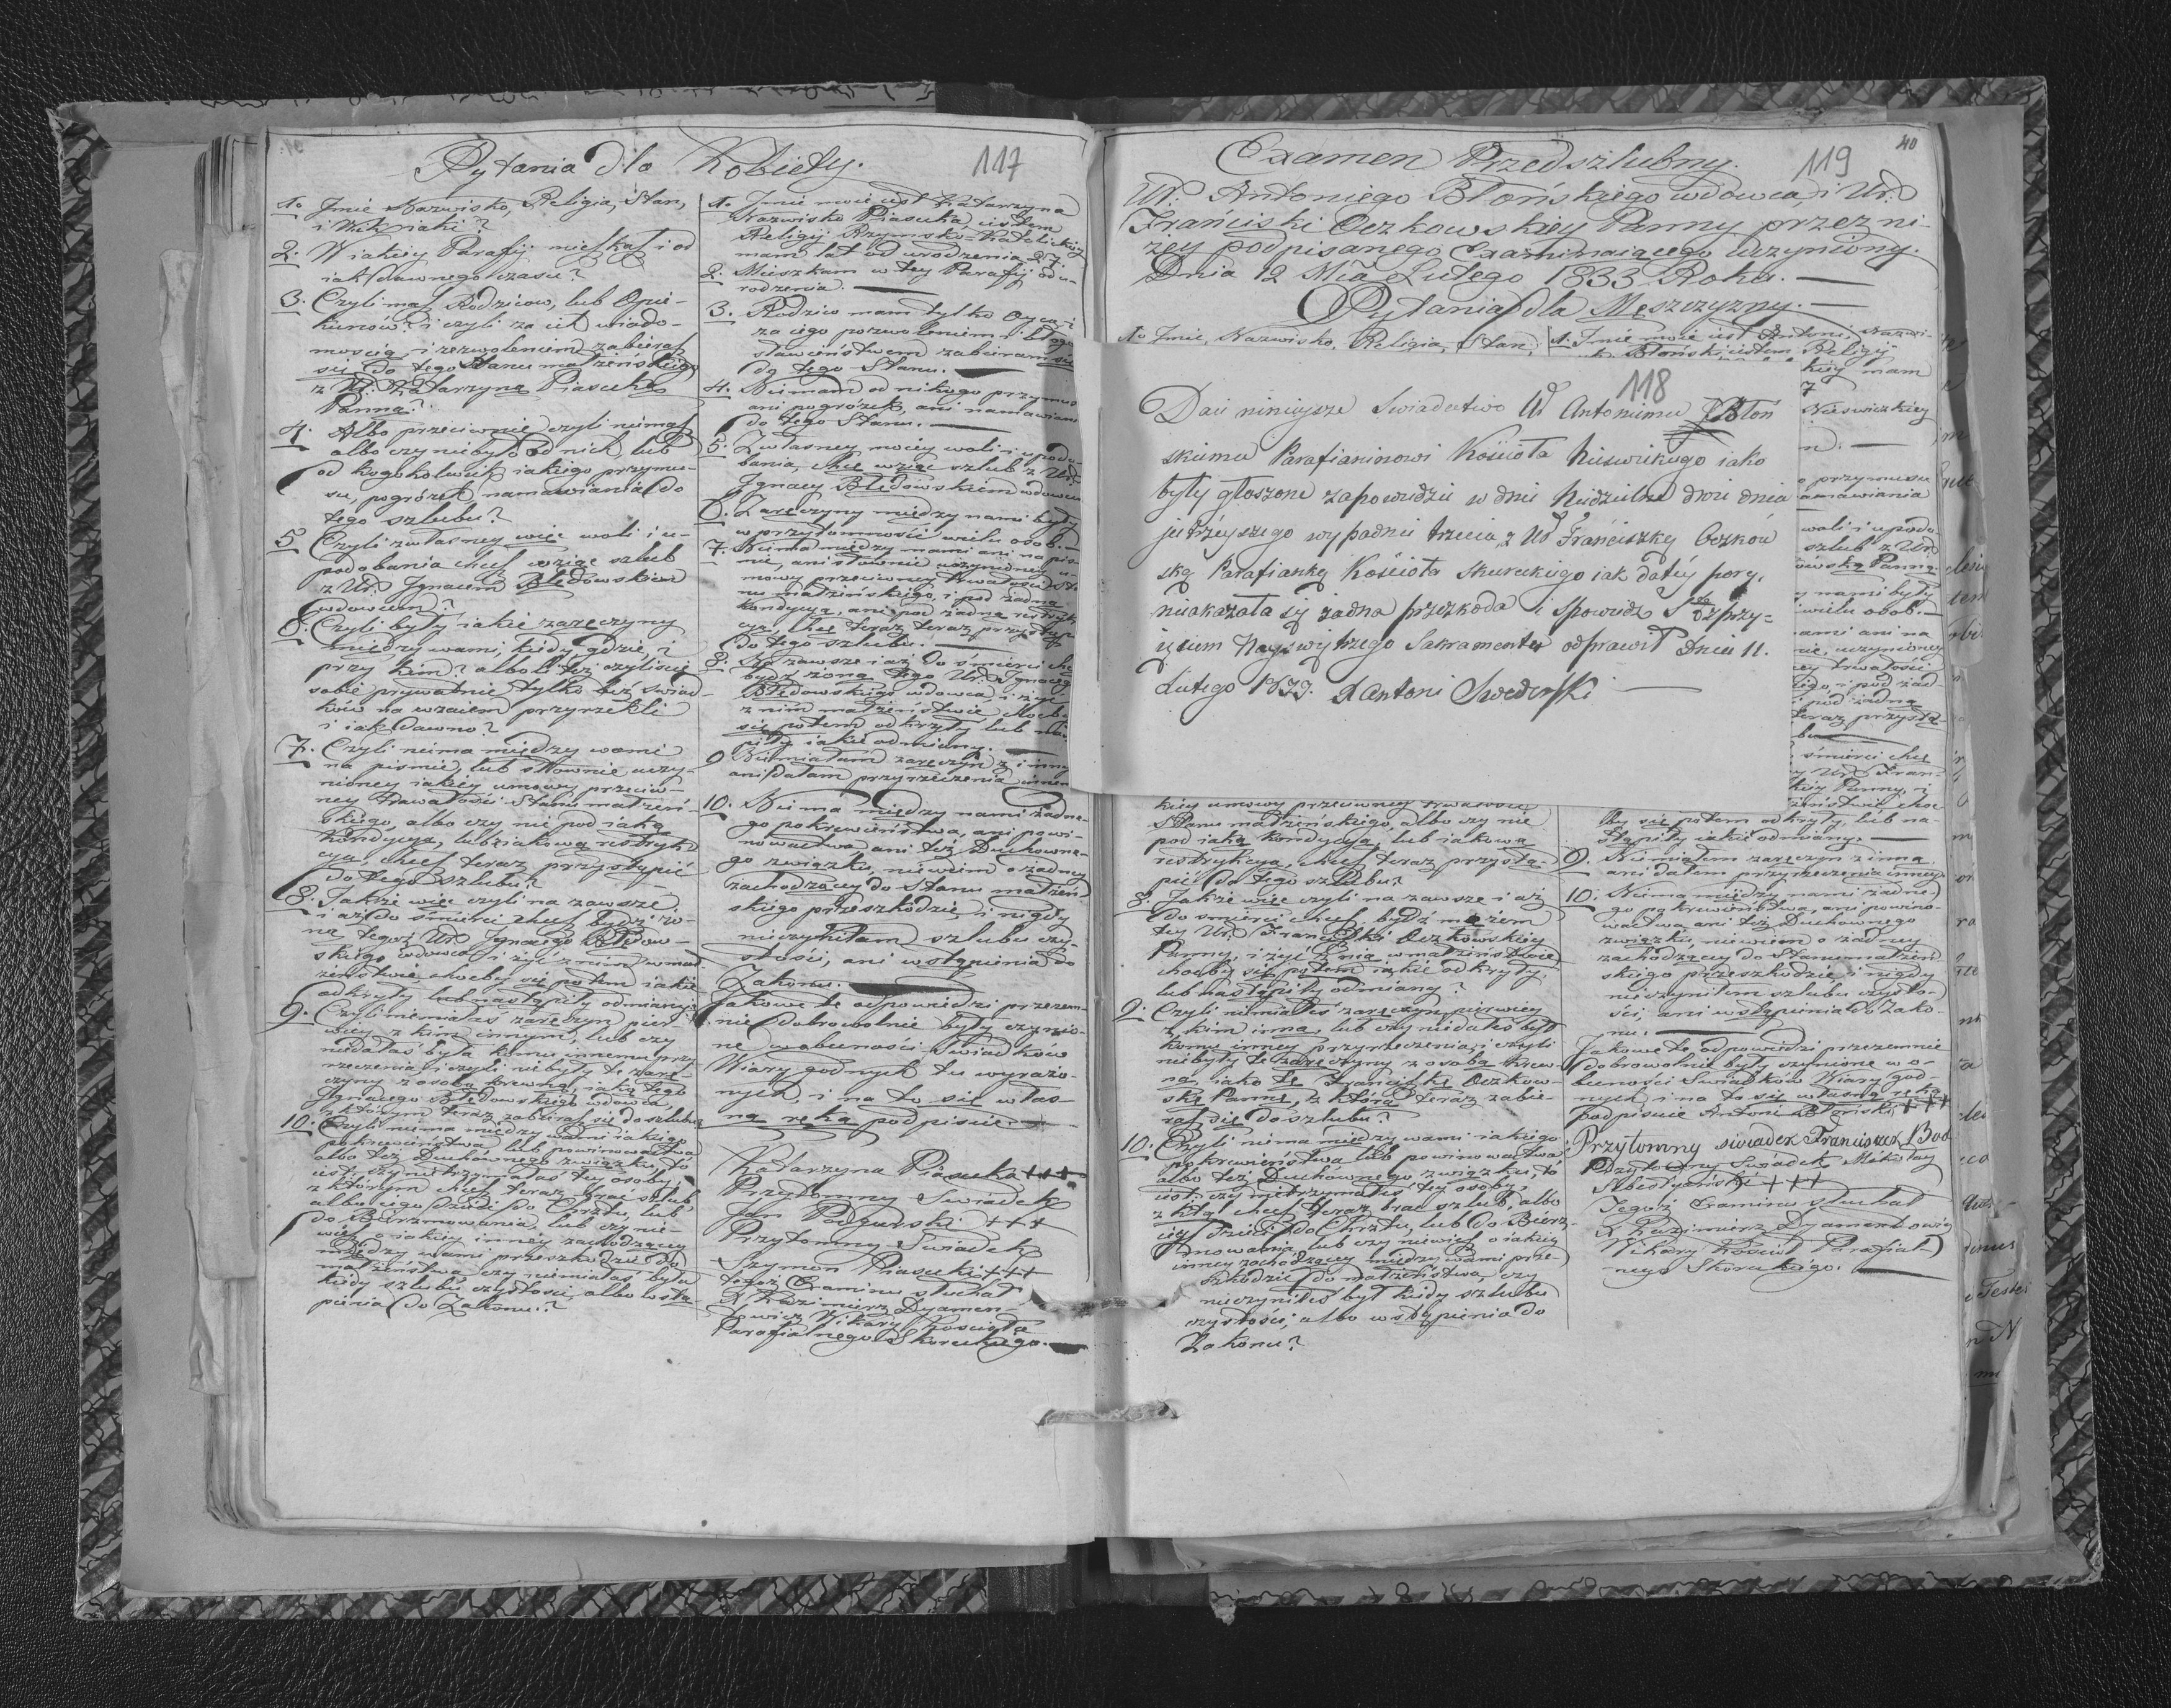 Pytania dla Kobiety.
117
1. Jmie Nazwisko, Religia, Stan,
i Wiek iaki?
2. W iakiey Parafij mieszkasz i od
iak dawnego czasu?
3. Czyli masz Rodzicow, lub Opie-
kunów? i czyli za ich wiado-
mością i zezwoleniem zabierasz
się do tego Stanu małżeńskiego
Panna?
4. Albo przeciwnie czyli niemasz
albo czy niebyło od nich, lub
od kogokolwiek iakiego przymu-
su, pogróżek namawiania do
tego szlubu?
5. Czyli zwłasney więc woli i u-
podobania chcesz wziąć szlub
z Ur. Jgnacem Błędowskiem
wdowcem?
6. Czyli były iakie zaręczyny
między wami, kiedy, gdzie, i
przy kim? albo li też czyliście
sobie prywatnie tylko bez świad-
ków na wzaiem przyrzekli
i iak dawno?
7. Czyli niema między wami
na pismie, lub słownie uczy-
nioney iakiey umowy przeciw-
ney trwałości Stanu małżeń-
skiego, albo czy nie pod iaką
kondycyą, lub iakową restryk-
cyą, chcesz teraz przystąpić
do tego szlubu?
8. Jakże więc czyli na zawsze
i aż do śmierci chcesz bydź żo-
ną tegoż Ur. Jgnacego Błędow-
skiego wdowca i żyć z nim w mał-
żeństwie choćby się potem iakie
odkryły lub nastąpiły odmiany?
9. Czyli niemiałaś zaręczyn pier-
wiey z kim innym, lub czy
niedałaś była komu innemu przy-
rzeczenia, i czyli niebyły te zarę-
czyny z osobą krewną, iako tego
Jgnacego Błędowskiego wdowca,
z którym teraz zabierasz się do szlubu?
10. Czyli niema między wami iakiego
pokrewieństwa, lub powinowactwa
albo też Duchównego związku, to
iest: czy nietrzymałaś tey osoby,
z którym chcesz teraz brać szlub,
albo iego Dzieci do Chrztu, lub
do Bierzmowania, lub czy nie-
wiesz o iakiey inney zachodzącey
między wami przeszkodzie do
małżeństwa, czy nieuczyniłaś była
kiedy szlubu czystości, albo wstą-
pienia do Zakonu?
1. Jmie moie iest Katarzyna
Nazwisko Piasucka, iestem
Religij Rzymsko-Katolickiey
mam lat od urodzenia 27.
2. Mieszkam w tey Parafij od u-
rodzenia.
3. Rodzice mam tylko Oyca i
za iego pozwoleniem i błogo
sławieństwem zabieram się
do tego Stanu.
4. Niemam od nikogo przymus
ani pogróżek, ani namawiani
do tego Stanu.
5. Z własney moiey woli i upodo-
bania, chcę wziąć szlub z Ur.
Jgnacy Błędowskiem wdowcem
6. Zaręczyny między nami były
w przytomności wielu osob.
7. Niema między nami ani na pis
mie, ani słownie uczynioney u-
mowy przeciwney trwałości Sta
nu małżeńskiego, i pod żadną
kondycyą, ani pod żadną restryk
cyą, chcę teraz przystąpi
do tego szlubu.
8. Na zawsze i aż do śmierci chcę
bydź żoną tego Ur. Jgnacego
Błędowskiego wdowca, i żyć
z nim małżeństwie choćby
się potem odkryły lub nas
piły iakie odmiany.
9. Niemiałam zaręczyn z inny
ani dałam przyrzeczenia innem
10. Niema między nami żadne-
go pokrewieństwa, ani powi-
nowactwa, ani też Duchowne-
go związku, niewiem o żadney
zachodzącey do Stanu małżeń-
skiego przeszkodzie, i nigdy
nieczyniłam szlubu czy-
stości, ani wstąpienia do
Zakonu.
Jakowe te odpowiedzi przezem-
nie dobrowolnie były czynio-
ne w obecności Swiadków
Wiary godnych tu wyrażo-
nych i na to się włas-
ną ręką podpisuie
Katarzyna Piasucka +++
Przytomny Swiadek
Jan Podgurski +++
Przytomny Swiadek
Szymon Piasucki +++
tegoż Examinu słuchał
X Kazimierz Dyamen-
towicz Wikary Kościoła
Parafialnego Skoruckiego.
40
119
Examen Przedszlubny.
Ur. Antoniego Błońskiego wdowca, i Ur.
Franciszki Oczkowskiey Panny przez ni-
żey podpisanego Examinuiącego uczyniony.
Dnia 12 Mca Lutego 1833 Roku.
Pytania dla Męszczyzny.
1. Jmie, Nazwisko, Religia, Stan,
1. Jmie moie iest Antoni Nazwi-
Błoński, iestem Religij
118
Daie ninieysze Swiadectwo Ur Antoniemu Błoń
skiemu Parafianinowi Kościoła Nieświckiego iako
były głoszone zapowiedzie w dnie Niedzielne dwie dnia
jutrzeyszego wypadnie trzecia, z Ur Franciszką Oczkow
ską Parafianką Kościoła Skureckiego iak do tey pory,
nieokazała się żadna przezkoda i Spowiedz Stą z przy=
ięciem Nayświętszego Sakramentu odprawił Dnia 11.
Lutego 1833. X Antoni Swederski
kiey umowy przeciwney trwałości
Stanu małżeńskiego, albo czy nie
pod iaką kondycyą, lub iakową
restrykcyą, chcesz teraz przystą-
pić do tego szlubu?
8. Jakże więc czyli na zawsze i aż
do śmierci chcesz bydź mężem
tey Ur. Franciszki Oczkowskiey
Panny, i żyć z nią w małżeństwie,
choćby się potem iakie odkryły,
lub nastąpiły odmiany?
9. Czyli niemiałeś zaręczyn pierwiey
z kim inną, lub czy niedałeś był
komu inney przyrzeczenia, i czyli
niebyły te zaręczyny z osobą krew-
ną, iako tę Franciszkę Oczkow-
ską Pannę, z którą teraz zabie-
rasz się do szlubu?
10. Czyli niema między wami iakiego
pokrewieństwa lub powinowactwa
albo też Duchównego związku, to
iest: czy nietrzymałeś tey osoby,
z którą chcesz teraz brać szlub, albo
iey dzieci do Chrztu, lub do Bierz-
mowania, lub czy niewiesz o iakiey
inney zachodzącey między wami prze-
szkodzie do małżeństwa, czy
nieczyniłeś był kiedy szlubu
czystości, albo wstąpienia do
Zakonu?
kiey mam
7
Nieswiczkiey
o przymusu
amawiania
woli i upodo
szlub z Ur.
owską Panną.
y nami były
wielu osob.
ami ani na
nie, uczynioney
ney trwałości
iego, i pod żad-
pod żadną
teraz przystą-
śmierci chcę
Ur. Fran-
kiey Panny, i
żeństwie, choć
by się potem odkryły, lub na-
stąpiły iakie odmiany.
9. Niemiałem zaręczyn z inną
ani dałem przyrzeczenia inney
10. Niema między nami żadne-
go pokrewieństwa, ani powino-
wactwa, ani też Duchownego
związku, niewiem o żadney
zachodzącey do Stanu małżeń
skiego przeszkodzie, i nigdy
nieczyniłem szlubu czysto-
ści, ani wstąpienia do Zako-
nu.
Jakowe te odpowiedzi przezemnie
dobrowolnie były czynione w o-
becności Swiadków Wiary god-
nych i na to się własną ręką
podpisuie Antoni Błoński +++
Przytomny swiadek Franciszek Bod
Przytomny Swiadek Mikołay
Sebestyański +++
Tegoż Examinu słuchał
X Kazimierz Dyamentowicz
Wikary Kościoła Parafial-
nego Skoruckiego.